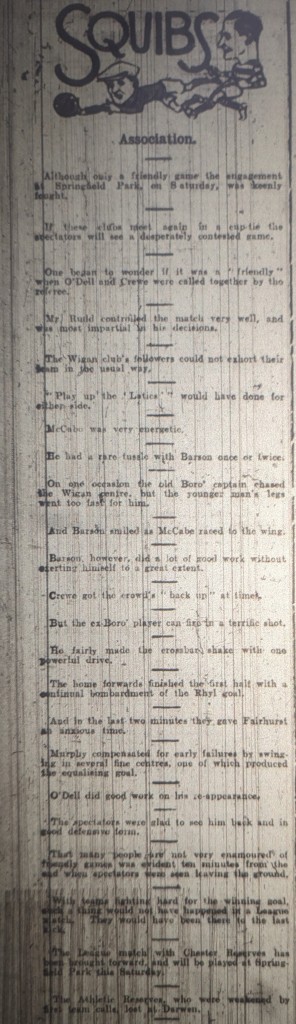 SQUIBS
Association.
Although only a friendly game the engagement
at Springfield Park, on Saturday, was keenly
fought.
If these clubs meet again in a cup-tie the
spectators will see a desperately contested game.
One began to wonder if it was a "friendly"
when O'Dell and Crewe were called together by the
referee.
Mr. Rudd controlled the match very well, and
was most impartial in his decisions.
The Wigan club's followers could not exhort their
team in the usual way.
"Play up the 'Latics'" would have done for
either side.
McCabe was very energetic.
He had a rare tussle with Barson once or twice.
On one occasion the old Boro' captain chased
the Wigan centre, but the younger man's legs
went too fast for him.
And Barson smiled as McCabe raced to the wing.
Barson, however, did a lot of good work without
exerting himself to a great extent.
Crewe got the crowd's "back up" at times.
But the ex-Boro' player can fire in a terrific shot.
He fairly made the crossbar shake with one
powerful drive.
The home forwards finished the first half with a
continual bombardment of the Rhyl goal.
And in the last two minutes they gave Fairhurst
an anxious time.
Murphy compensated for early failures by swing-
ing in several fine centres, one of which produced
the equalising goal.
O'Dell did good work on his re-appearance.
The spectators were glad to see him back and in
good defensive form.
That many people are not very enamoured of
friendly games was evident ten minutes from the
end when spectators were seen leaving the ground.
With teams fighting hard for the winning goal,
such a thing would not have happened in a League
match. They would have been there to the last
kick.
The League match with Chester Reserves has
been brought forward, and will be played at Spring-
field Park this Saturday.
The Athletic Reserves, who were weakened by
first team calls, lost at Darwen.